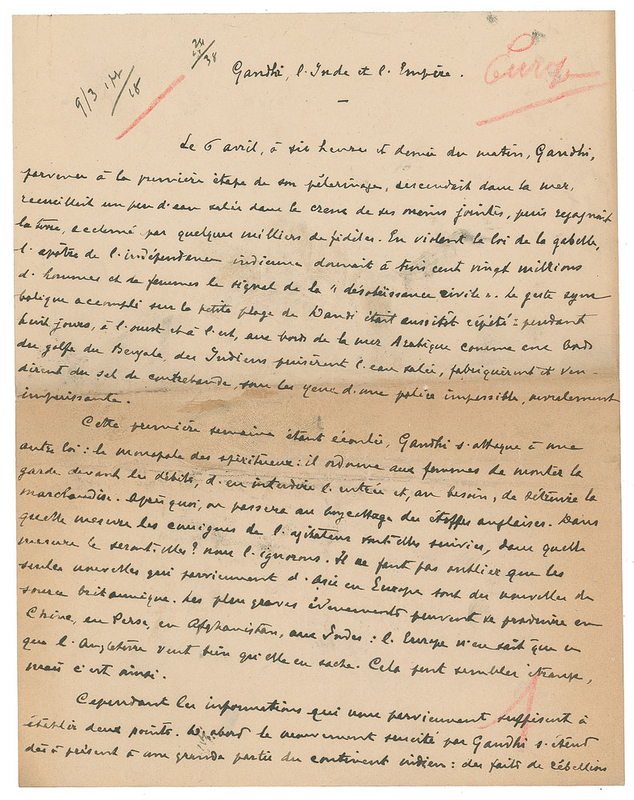 9/3
18
24
38
Europe
Gandhi, l'Inde et l'Empire.
Le 6 avril, à six heures et demie du matin, Gandhi,
parvenu à la première étape de son pèlerinage, descendait dans la mer,
recueillait un peu d'eau salée dans le creux de ses mains jointes, puis regagnait
la terre, acclamé par quelques milliers de fidèles. En violant la loi de la gabelle,
l'apôtre de l'indépendance indienne donnait à trois cent vingt millions
d'hommes et de femmes le signal de la "désobéissance civile". Le geste sym
bolique accompli sur la petite plage de Dandi était aussitôt répété : pendant
huit jours, à l'ouest et à l'est, aux bords de la mer Arabique comme aux bords
du golfe du Bengale, des Indiens puisèrent l'eau salée, fabriquèrent et ven-
dirent du sel de contrebande, sous les yeux d'une police impassible, moralement
impuissante.
Cette première semaine étant écoulée, Gandhi s'attaque à une
autre loi : le monopole des spiritueux : il ordonne aux femmes de monter la
garde devant les débits, d'en interdire l'entrée et, au besoin, de détruire la
marchandise. Après quoi, on passera au boycottage des étoffes anglaises. Dans
quelle mesure les consignes de l'agitateur sont-elles suivies, dans quelle
mesure le seront-elles ? nous l'ignorons. Il ne faut pas oublier que les
seules nouvelles qui parviennent d'Asie en Europe sont des nouvelles de
source britannique. Les plus graves évènements peuvent se produire en
Chine, en Perse, en Afghanistan, aux Indes : l'Europe n'en sait que ce
que l'Angleterre veut bien qu'elle en sache. Cela peut sembler étrange,
mais c'est ainsi.
Cependant les informations qui nous parviennent suffisent à
établir deux points. D'abord le mouvement suscité par Gandhi s'étend
dès à présent à une grande partie du continent indien : des faits de rébellions